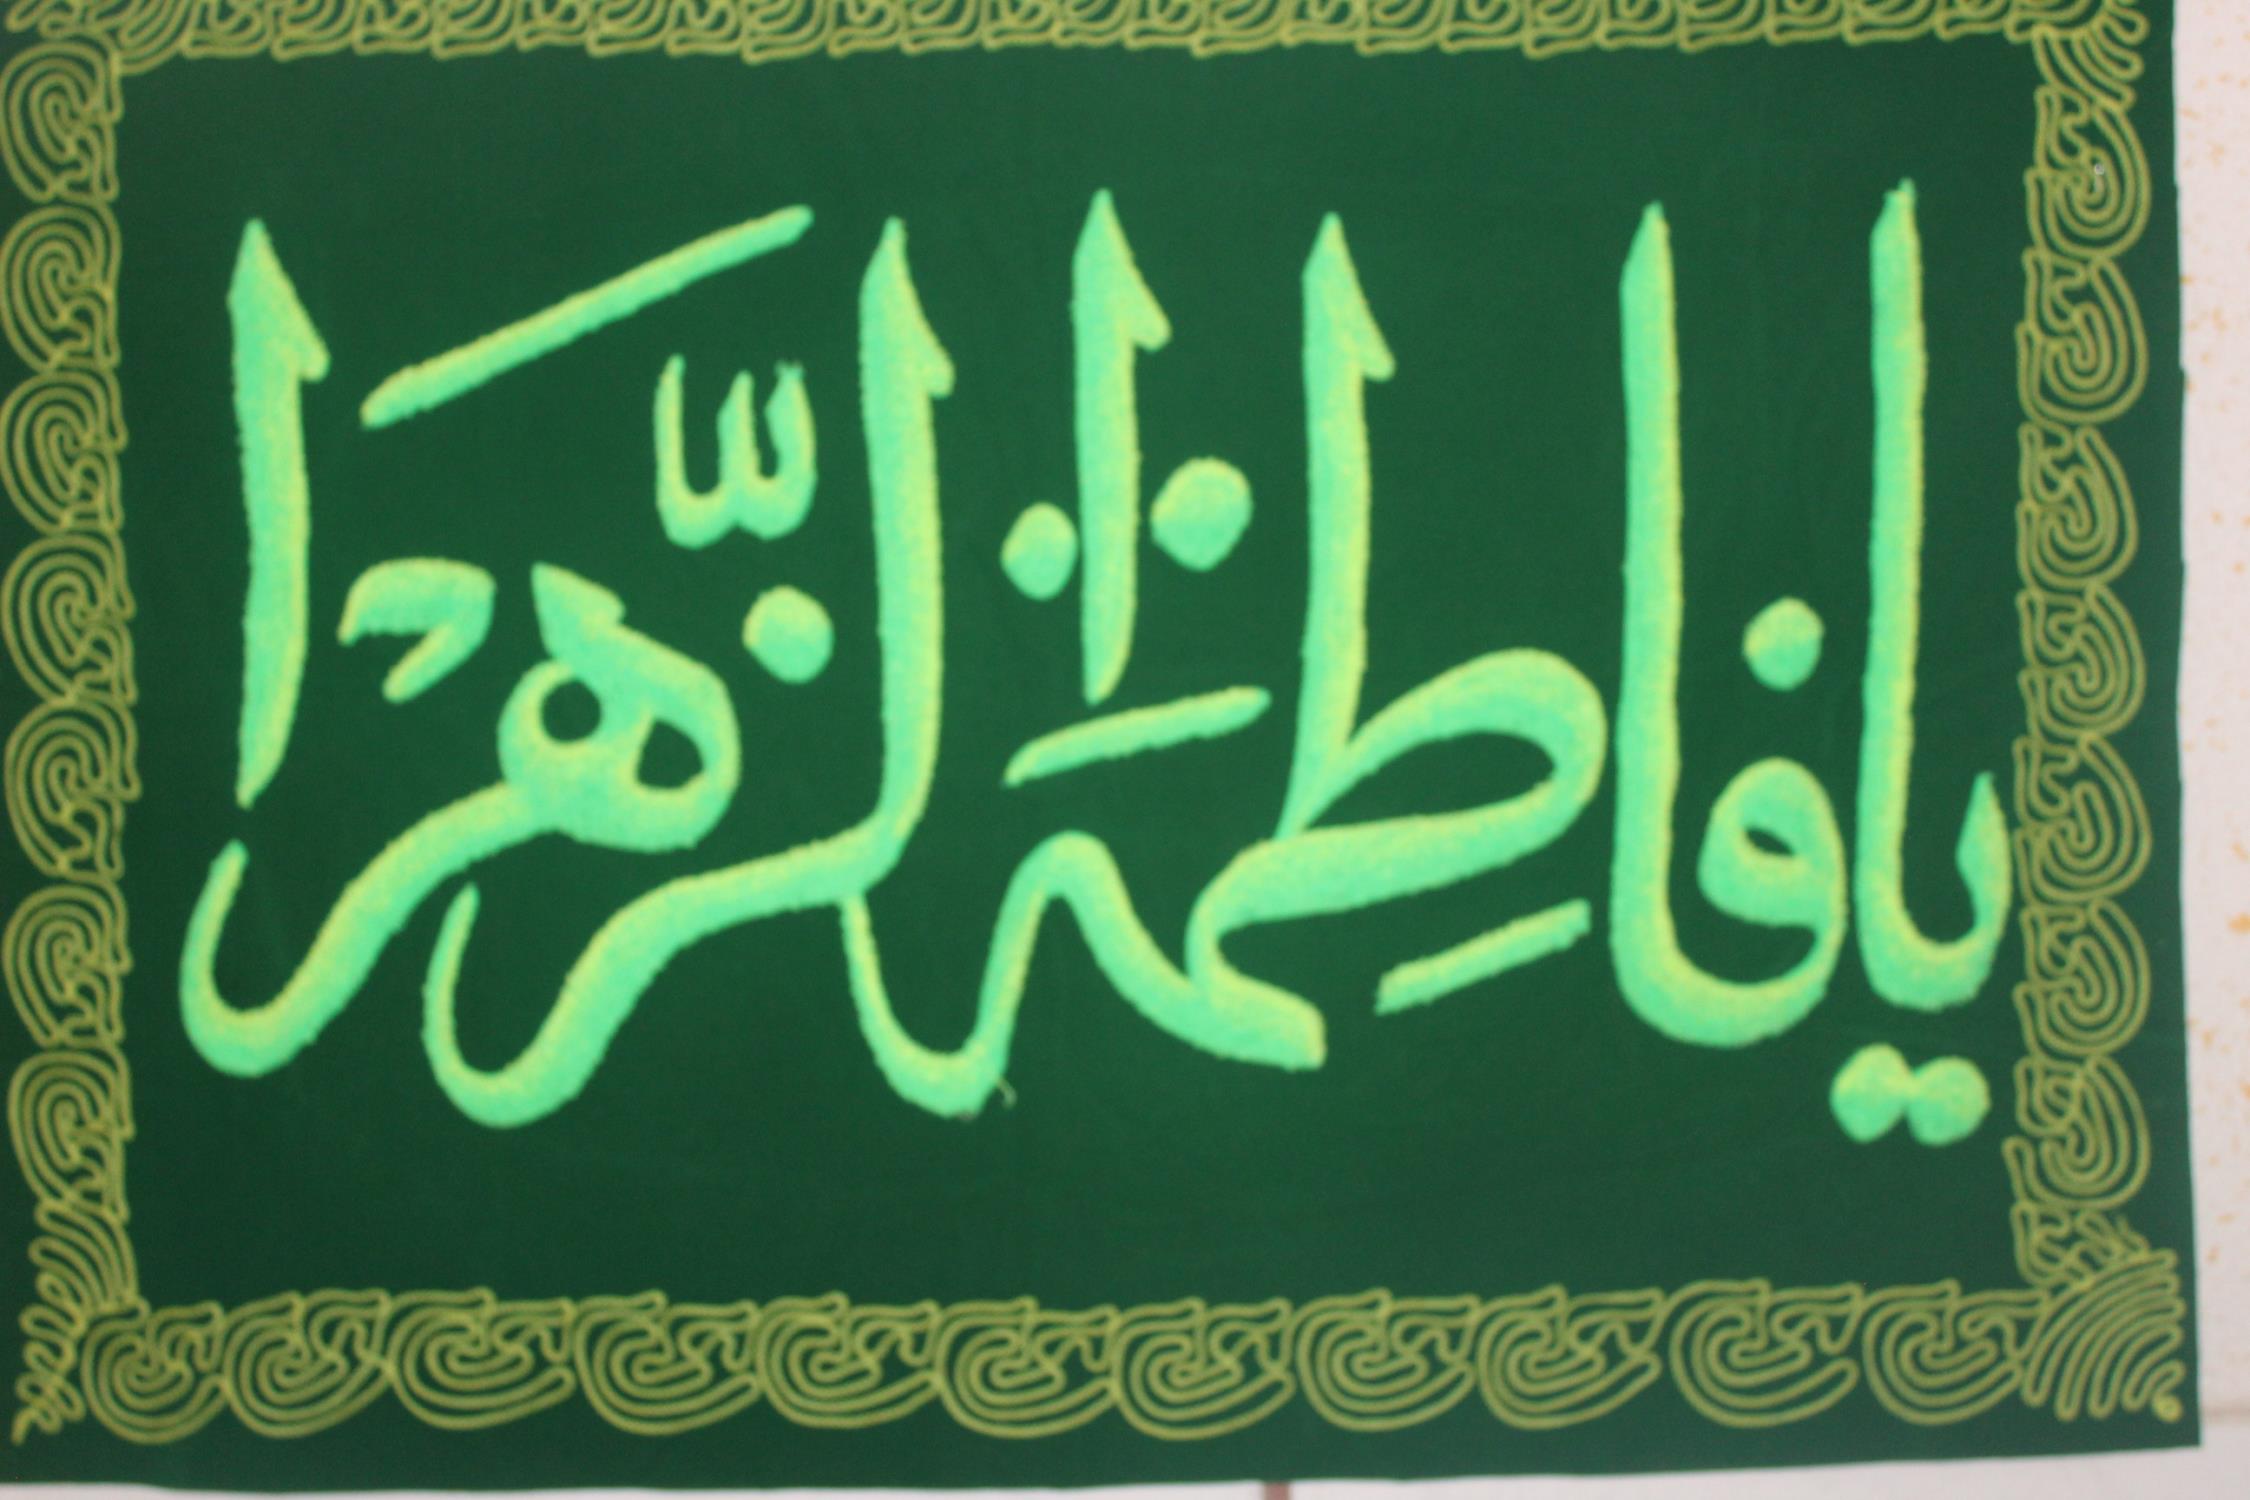 یا فاطِمَة الزَّهرا